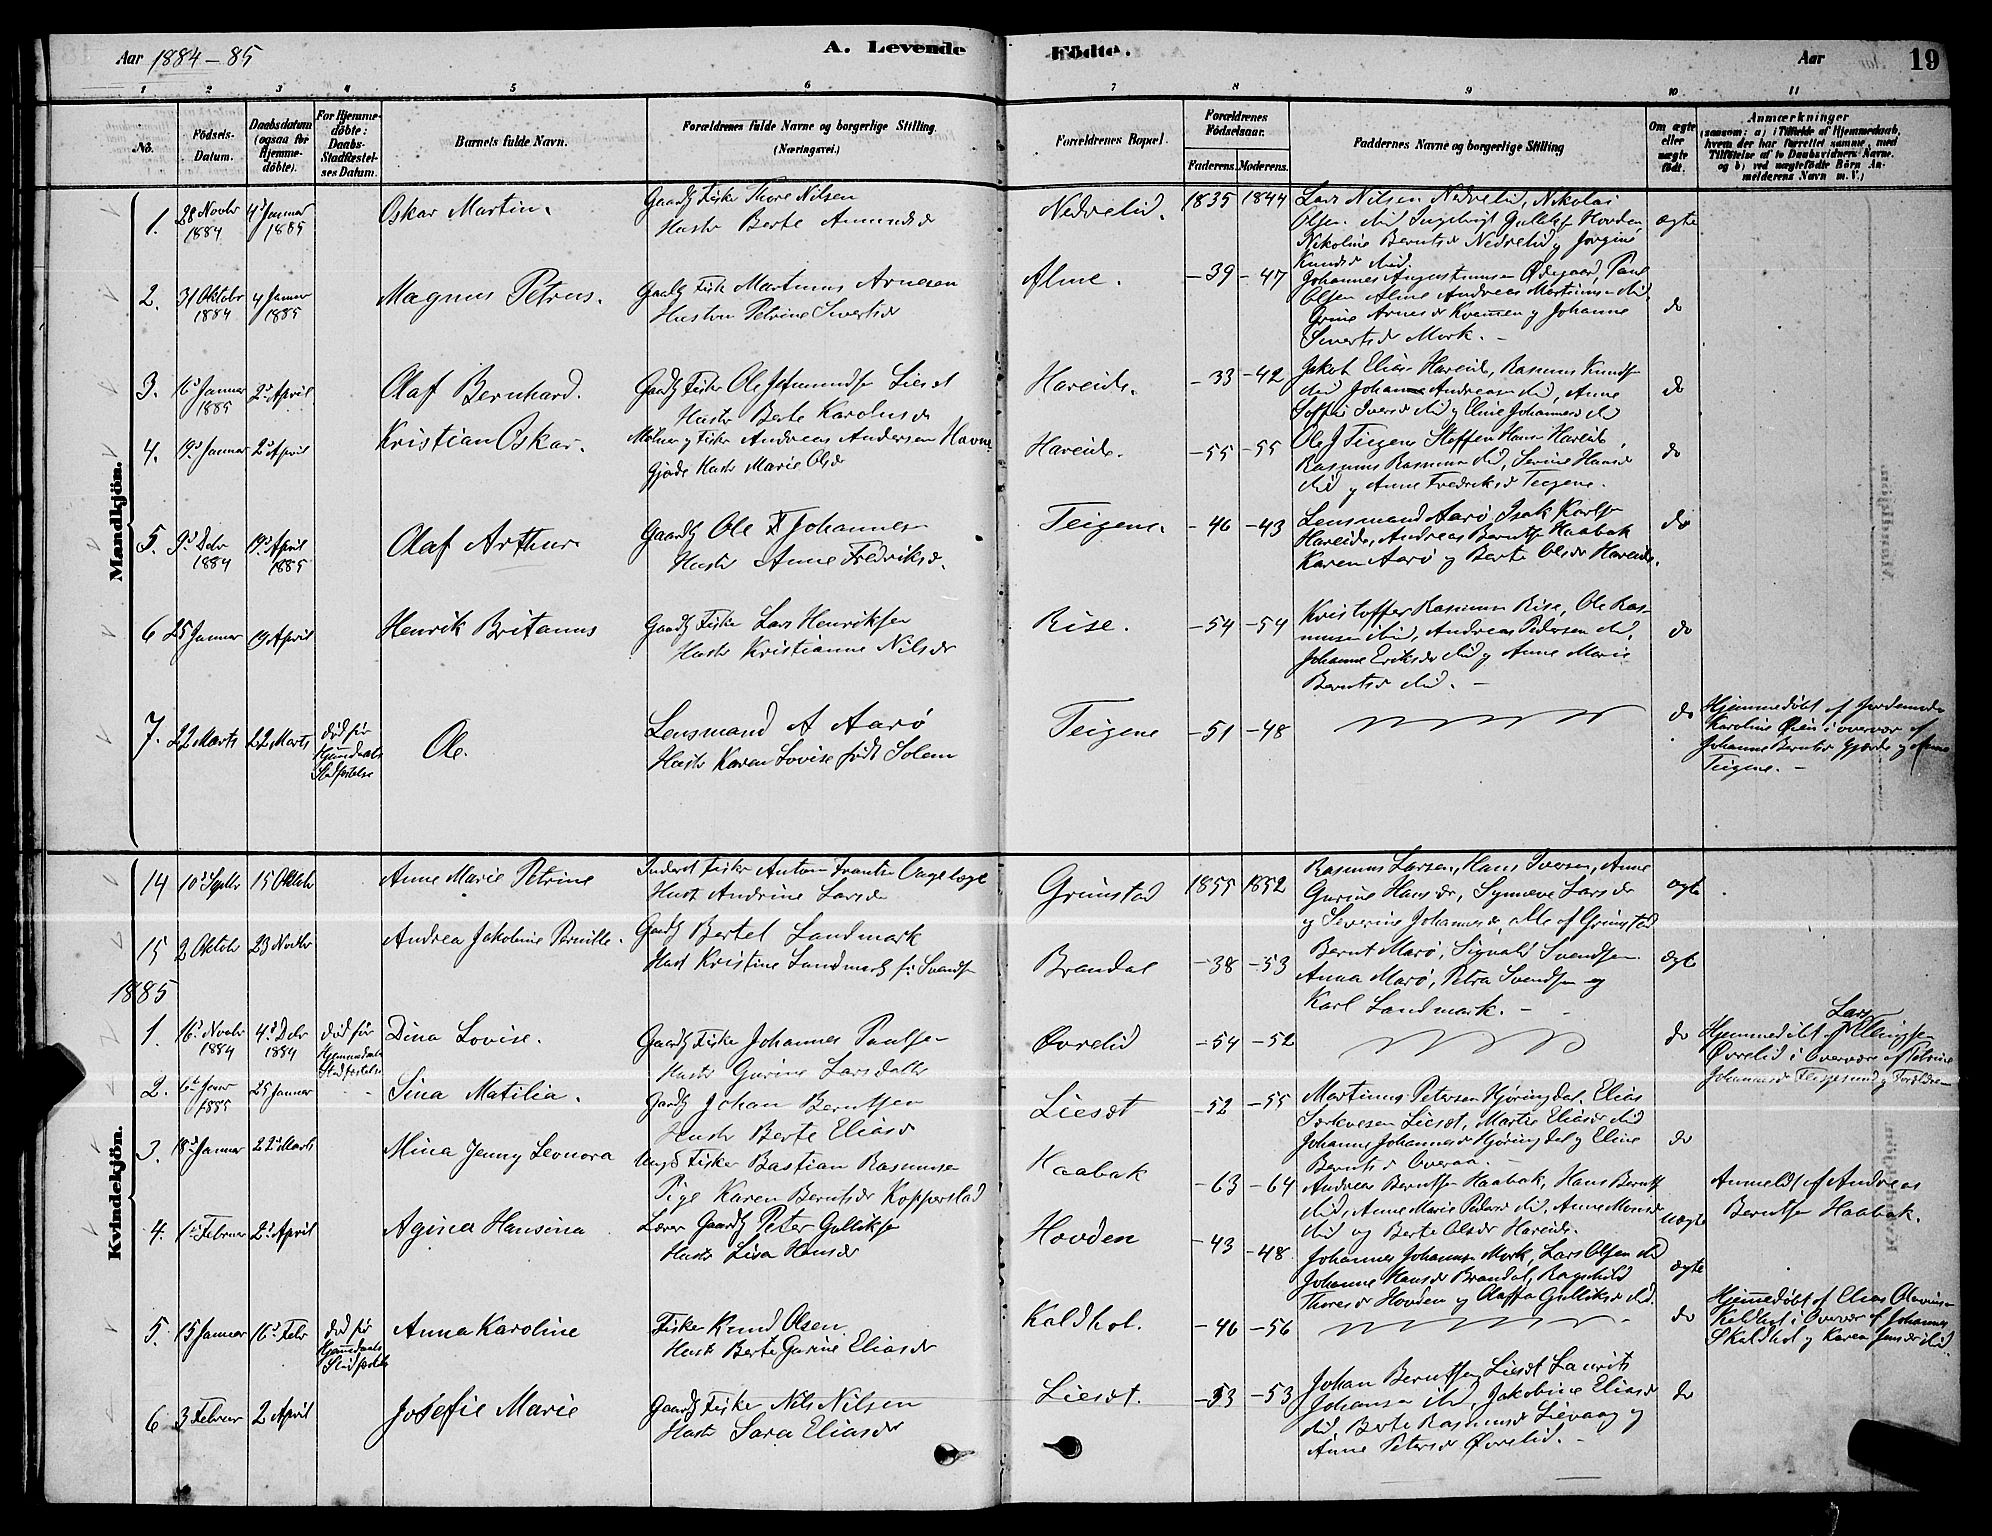 Aar 1884-85
A. Levende Fødte.
Aar
19
1 2 3 4 5 6 7 8 9 10 11
No.
Fødsels-Datum.
Daabsdatum (ogsaa for Hjemmedøbte).
For Hjemmedøbte: Daabs-Stadfæstelses Datum.
Barnets fulde Navn.
Forældrenes fulde Navne og borgerlige Stilling. (Næringsvei.)
Forældrenes Bopæl.
Forældrenes Fødselsaar.
Faderens. Moderens.
Faddernes Navne og borgerlige Stilling
Om ægte eller uægte født.
Anmærkninger
(saasom: a) i Tilfælde af Hjemmedaab, hvem der har forrettet samme, med Tilføielse af to Daabsvidners Navne, og b) ved uægtefødte Børn Anmelderens Navn m. V.)
Mandkjön.
1. 28 Novbr 1884 4d Januar 1885 Oskar Martin.
Gaardb Fisker Thore Nilsen
Hustr Berte Amundsdr
Nedrelid. 1835 1844
Lars Nilsen Nedrelid, Nikolai
Olsen ibid Ingebrigt Gulliksen Hovden
Nikoline Berntsdr Nedrelid og Jorgine
Knudsdr ibid.
ægte
2. 31 Oktobr 1884 4 Januar 1885 Magnus Petrus.
Gaardb Fisker Martinus Arnesen
Hustru Petrine Sivertsdr
Alme. -39 -47
Johannes Augustinusen Ødegaard, Paul
Olsen Alme Andreas Martinusen ibid
Grine Arnesdr Kvamsen og Johanne
Sivertsdr Mork. -
do
3. 16d Januar 1885 2d April Olaf Bernhard.
Gaardb Fisker Ole Johannids Liesæt
Hustr Berte Karolusdr
Hareide. -33 -42
Jakob Elias Hareide, Rasmus Knuds
ibid Johan Andreasen ibid, Anne
Soffie Iversdr ibid og Eline Johannesdr ibid
do
4. 19d Januar 2d April Kristian Oskar.
Møller og Fisker Andreas Andersen Havne
Gjerde Hustr Marie Olsdr
Hareide. -55 -55
Ole J Teigene Steffen Hansen Hareide,
Rasmus Rasmussen ibid, Serine Hansdr
ibid og Anne Fredriksdr Teigene.
do
5. 9d Debr 1884 19d April 1885 Olaf Arthur
Gaardb Ole F Johannes
Hustr Anne Fredriksdr.
Teigene. -46 -43
Lensmand Aarø, Isak Karlsen
Hareide, Andreas Berntsen Haabak
Karen Aarø og Berte Olsdr Hareide.
do
6 25 Januar 19 April Henrik Britanus
Gaardb Fisker Lars Henriksen
Hustr Kristianne Nilsdr
Rise. -54 -54
Kristoffer Rasmussen Rise, Ole Ras-
mussen ibid, Andreas Pedersen ibid,
Johanne Eriksdr ibid og Anne Marie
Berntsdr ibid. -
do
7. 22 Marts 22 Marts død før Hjemmedaabs Stadfæstelse Ole.
Lensmand A Aarø
Hustr Karen Lovise født Solem
Teigene -51 -48
do
Hjemmedøbt af Jordemoder
Karoline Øien i overvær af
Johanne Berntsdr Gjerde og Anne
Teigene. -
Kvindekjön.
14 10d Septbr 15 Oktbr Anne Marie Petrine
Inderst Fisker Anton Frantsen Aageløge
Hustr Andrine Larsdr
Grimstad 1855 1852
Rasmus Larsen, Hans Iversen, Anne
Gurine Hansdr, Synneve Larsdr
og Severine Johannesdr, alle af Grimstad
ægte
15 2 Oktobr 23 Novbr Andrea Jakobine Pernille.
Gaardb Bertel Landmark
Hust Kristine Landmark f. Svendsen
Brandal -38 -53
Bernt Marø, Sigvald Svendsen
Anna Marø, Petra Svendsen og
Karl Landmark. -
ægte
1885
1. 16d Novbr 1884 4d Debr 1884 død før Hjemmedaabs Stadfæstelse Dina Lovise.
Gaardb Fisker Johannes Paulsen
Hustr Gurine Larsdatter
Øvrelid -54 -52
do
Hjemmedøbt af Lars P Ellingsen
Øvrelid i Overvær af Petrine
Johannesdr Flisesund og Forældrene
2. 6te Janr 1885 25 Januar Sina Matilia.
Gaardb Johan Berntsen
Hustr Berte Eliasdr
Liesæt -52 -55
Martinus Petersen Hjøringdal. Elias
Torkvesen Liesæt, Martie Eliasdr ibid
Johanne Johannesdr Hjøringdal og Eline
Berntsdr Overaa. -
do
3. 18d Januar 22d Marts Mina Jenny Leonora
Ungk Fisker Bastian Rasmussen
Pige Karen Berntsdr Kopperstad
Haabak -63 -64
Andreas Berntsen Haabak, Hans Berntsen
ibid, Anne Marie Pedersdr ibid, Anne Monsdr
ibid og Berte Olsdr Hareide.
uægte
Anmeldt af Andreas
Berntsen Haabak.
4. 1ste Februar 2d April Agina Hansina
Lærer Gaardb Peter Gulliksen
Hustr Lisa Hansdr
Hovden -43 -48
Johannes Johannesen Mork, Lars Olsen ibid
Johanne Hansdr Brandal, Ragnhild
Thoresdr Hovden og Olaffa Gulliksdr ibid.
ægte
5. 15 Januar 16d Febr død før Hjemmedaabs Stadfæstelse Anna Karoline
Fisker Knud Olsen
Hustr Berte Gurine Eliasdr
Kaldhol. -46 -56
do
Hjemmedøbt af Elias Olavusen
Kaldhol i Overvær af Johannes
S Kaldhol og Karen Jensdr ibid.
6 3 Februar 2 April Josefie Marie
Gaardb Fisker Nils Nilsen
Hustr Sara Eliasdr
Liesæt. -53 -53
Johan Berntsen Liesæt Laurits
Johansen ibid, Jakobine Eliasdr
ibid, Berte Rasmusdr Lievaag og
Anne Petersdr Øvrelid. -
do